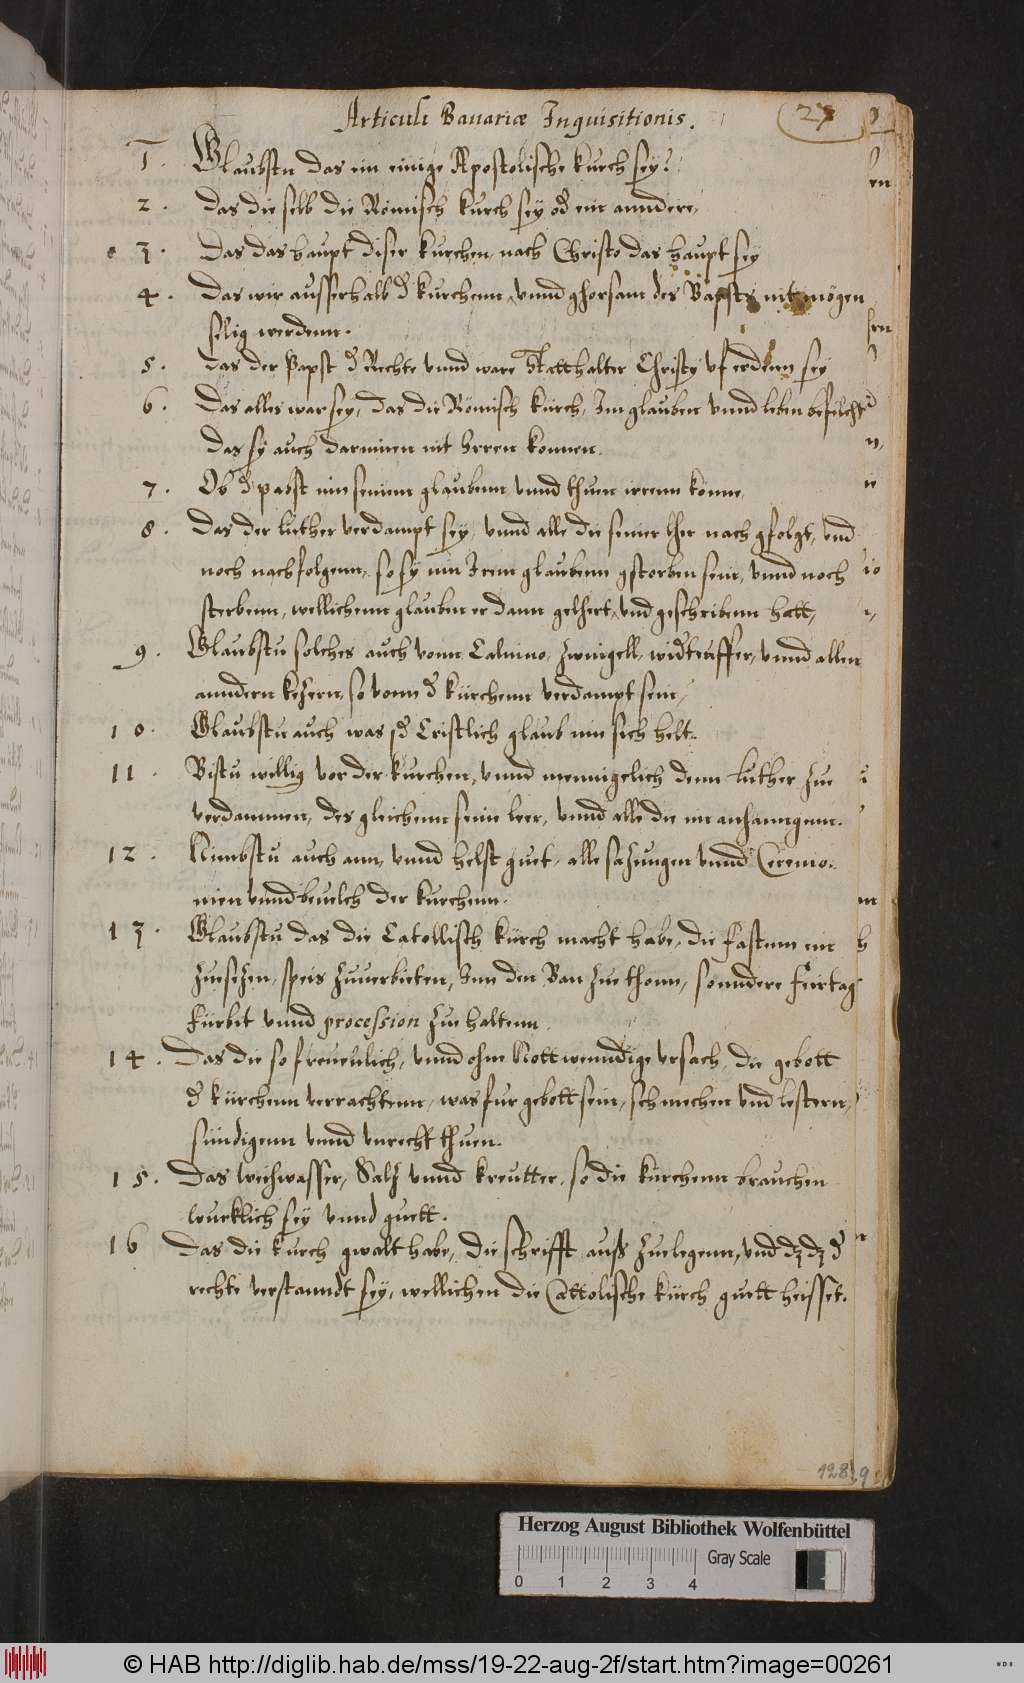 Articuli Bauariæ Inquisitionis.
27
1. Glaubstu das ein einige Apostolische kurch sey?
2. Das die selb die Römisch kurch sey od ein anndere,
3. Das das haupt diser kurchen, nach Christo das haupt sey
4. Das wir ausserhalb d kurchenn, vnnd ghorsam des Bapsts nit mögen
selig werdenn.
5. Das der Papst d Rechte vnnd ware Statthalter Christy vf erdenn sey
6. Das alles war sey, das die Römisch kürch, Im glauben vnnd leben befilcht
das sy auch darinnen nit Irren konnen.
7. Ob d pabst inn seinem glaubenn vnnd thuen irrenn könne,
8. Das der luther verdampt sey, vnnd alle die seiner lher nach gfolgt, vnd
noch nachfolgenn, so sy inn Irem glaubenn gstorben sein, vnnd noch
sterbenn, wellichenn glauben er dann gelhert, vnd geschribenn hatt,
9. Glaubstu solches auch vonn Caluino, Zwingell, widtauffer, vnnd allen
anndern kezern, so vonn d kürchenn verdampt sein,
10. Glaubstu auch was d Cristlich glaub inn sich helt.
11. Bistu willig vor der kurchen, vnnd mennigelich denn Luther zue
verdammen, des gleichenn seine leer, vnnd alle die im anhanngenn.
12. Nimbstu auch ann, vnnd helst guet, alle sazungen vnnd Ceremo-
nien vnnd beuelch der kurchenn.
13. Glaubstu das die Catollisch kürch macht habe, die fastenn ein
zuesezen, speis zuuerbieten, Inn den Ban zue thonn, sonndere feirtag
fürbit vnnd procession zue haltenn.
14. Das die so freuenlich, vnnd ohne Nottwenndige vrsach, die gebott
d kürchenn verrachtenn, was fur gebott sein, schmechen vnd lestern,
sündigenn vnnd vnrecht thuen.
15. Das weihwasser, Salz vnnd kreutter, so die kurchenn brauchen
wurklich sey vnnd guett.
16 Das die kurch gwalt habe, die schrifft auß zuelegenn, vnd dz dz d
rechte verstanndt sey, wellichen die Cattolische kürch guett heisset.
128
Herzog August Bibliothek Wolfenbüttel
Gray Scale
0 1 2 3 4
© HAB http://diglib.hab.de/mss/19-22-aug-2f/start.htm?image=00261